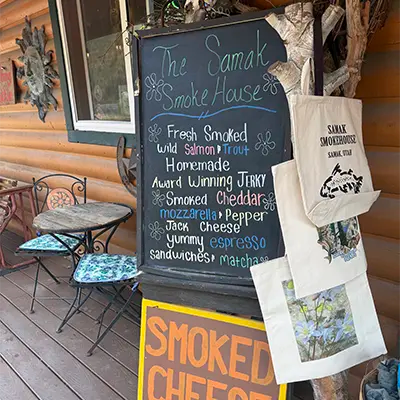 The Samak
Smoke House
Fresh Smoked
wild Salmon & Trout
Homemade
Award Winning JERKY
Smoked Cheddar
mozzarella & Pepper
Jack Cheese
yummy espresso
sandwiches & matcha
SMOKED
CHEESE
SAMAK
SMOKEHOUSE
SAMAK, UTAH